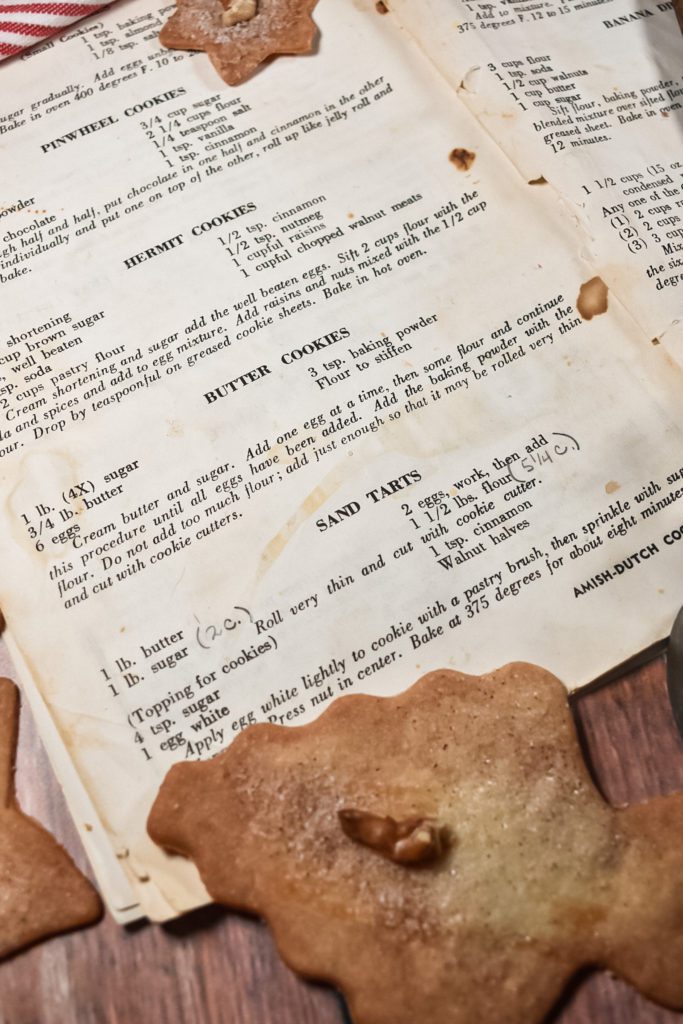 (Small Cookies)
1 tsp. baking
1 tsp. almond
1/8 tsp. salt
sugar gradually. Add eggs
Bake in oven 400 degrees F. 10 to
PINWHEEL COOKIES
3/4 cup sugar
2 1/4 cups flour
1/4 teaspoon salt
1 tsp. vanilla
1 tsp. cinnamon
chocolate
half and half, put chocolate in one half and cinnamon in the other
individually and put one on top of the other, roll up like jelly roll and
bake.
HERMIT COOKIES
1/2 tsp. cinnamon
1/2 tsp. nutmeg
1 cupful raisins
1 cupful chopped walnut meats
shortening
cup brown sugar
well beaten
2 cups pastry flour
Cream shortening and sugar add the well beaten eggs. Sift 2 cups flour with the
and spices and add to egg mixture. Add raisins and nuts mixed with the 1/2 cup
Drop by teaspoonful on greased cookie sheets. Bake in hot oven.
BUTTER COOKIES
3 tsp. baking powder
Flour to stiffen
1 lb. (4X) sugar
3/4 lb. butter
6 eggs
Cream butter and sugar. Add one egg at a time, then some flour and continue
this procedure until all eggs have been added. Add the baking powder with the
flour. Do not add too much flour; add just enough so that it may be rolled very thin
and cut with cookie cutters.
SAND TARTS
1 lb. butter
1 lb. sugar (2 c.)
2 eggs, work, then add
1 1/2 lbs. flour (5 1/4 c.)
Roll very thin and cut with cookie cutter.
(Topping for cookies)
4 tsp. sugar
1 egg white
1 tsp. cinnamon
Walnut halves
Apply egg white lightly to cookie with a pastry brush, then sprinkle with
Press nut in center. Bake at 375 degrees for about eight minutes
AMISH-DUTCH
Add to mixture.
375 degrees F. 12 to 15
BANANA
3 cups flour
1 tsp. soda
1/2 cup walnuts
1 cup butter
1 cup sugar
Sift flour, baking powder,
blended mixture over sifted
greased sheet. Bake in oven
12 minutes.
1 1/2 cups (15 oz.
condensed
Any one of the
(1) 2 cups
(2) 2 cups
(3) 3 cup
the six